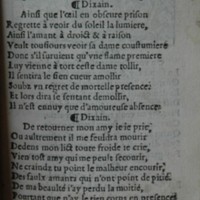 ¶Dixain.
Ainsi que l'œil en obscure prison
Regrette à veoir du soleil la lumiere,
Ainsi l'amant à droict & à raison
Veult tousiours veoir sa dame coustumiere
Donc s'il suruient qu'vne flamme premiere
Luy vienne à tort ceste dame tollir,
Il sentira le sien cueur amollir
Soubz vn regret de mortelle presence:
Et lors dira se sentant demollir,
Il n'est ennuy que d'amoureuse absence
¶Dixain.
De retourner mon amy ie te prie,
Ou autrement il me fauldra mourir
Dedens mon lict toute froide ie crie,
Vien tost amy qui me peult secourir,
Ne craindz tu point le malheur encourir,
Des faulx amants qui n'ont point de pitié
De ma beaulté i'ay perdu la moitié,
Pourtant que n'ay le tien corps en presence